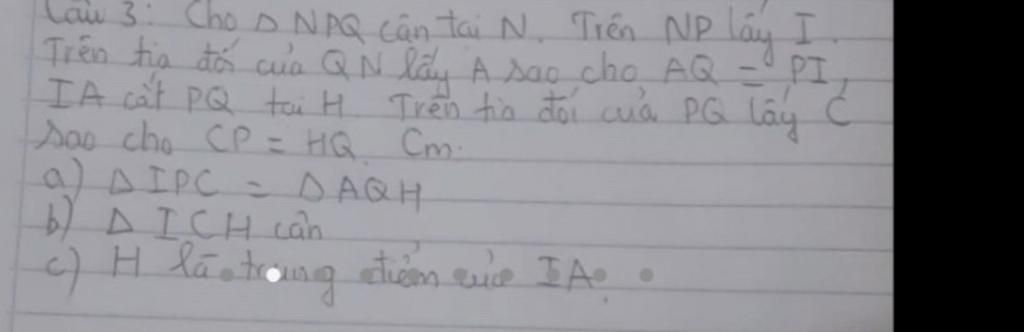 Câu 3: Cho Δ NPQ cân tại N. Trên NP lấy I.
Trên tia đối của QN lấy A sao cho AQ = PI,
IA cắt PQ tại H. Trên tia đối của PQ lấy C
sao cho CP = HQ. Cm:
a) Δ IPC = Δ AQH
b) Δ ICH cân
c) H là trung điểm của IA.